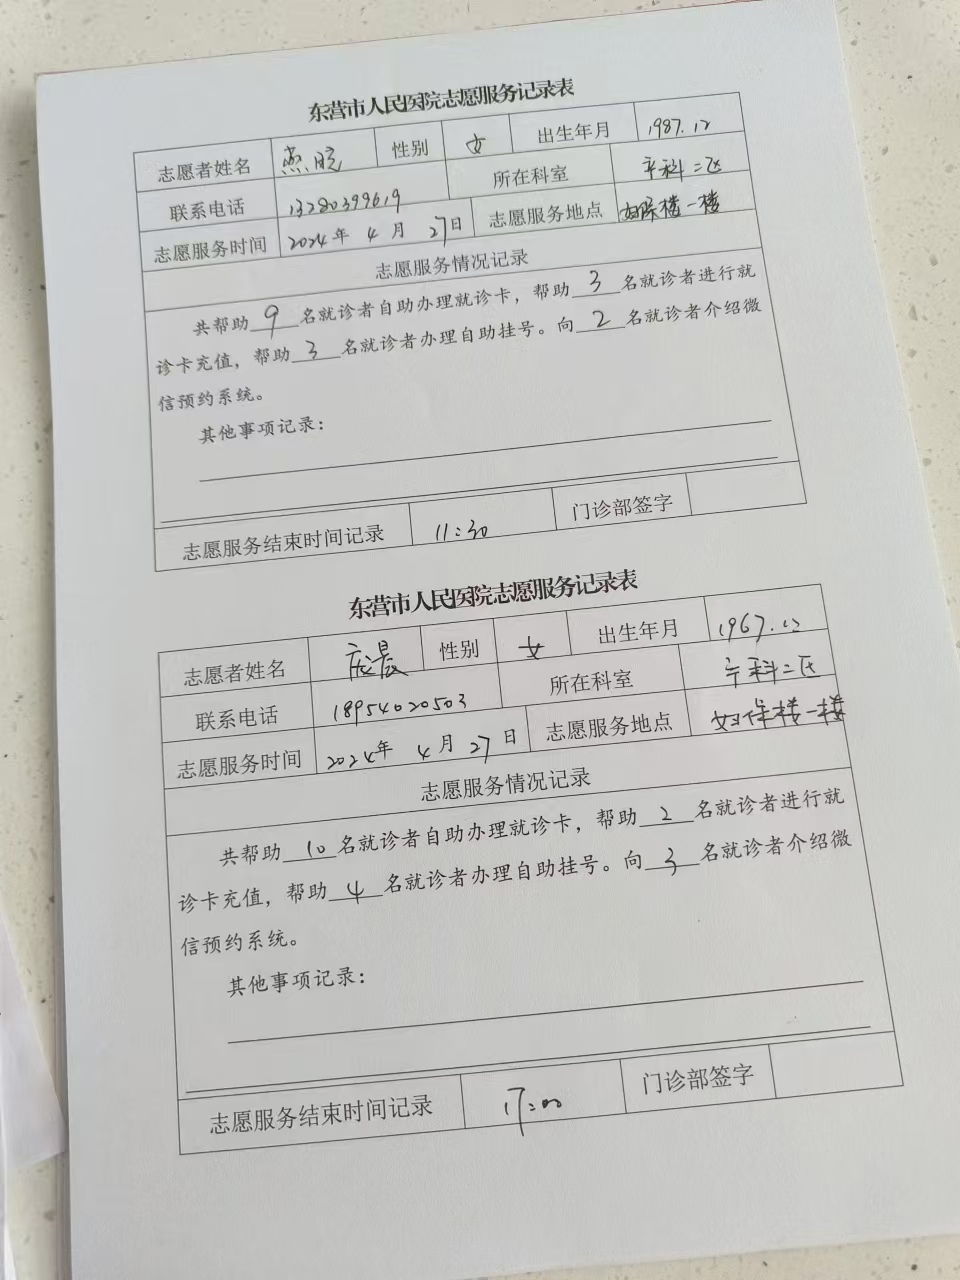 东营市人民医院志愿服务记录表
志愿者姓名 燕皖 性别 女 出生年月 1987.12
联系电话 13280399619 所在科室 产科二区
志愿服务时间 2024年 4月 27日 志愿服务地点 妇保楼一楼
志愿服务情况记录
共帮助 9 名就诊者自助办理就诊卡，帮助 3 名就诊者进行就
诊卡充值，帮助 3 名就诊者办理自助挂号。向 2 名就诊者介绍微
信预约系统。
其他事项记录：
志愿服务结束时间记录 11:30 门诊部签字
东营市人民医院志愿服务记录表
志愿者姓名 晨 性别 女 出生年月 1967.12
联系电话 18954020503 所在科室 产科二区
志愿服务时间 2024年 4月 27日 志愿服务地点 妇保楼一楼
志愿服务情况记录
共帮助 10 名就诊者自助办理就诊卡，帮助 2 名就诊者进行就
诊卡充值，帮助 4 名就诊者办理自助挂号。向 3 名就诊者介绍微
信预约系统。
其他事项记录：
志愿服务结束时间记录 17:00 门诊部签字